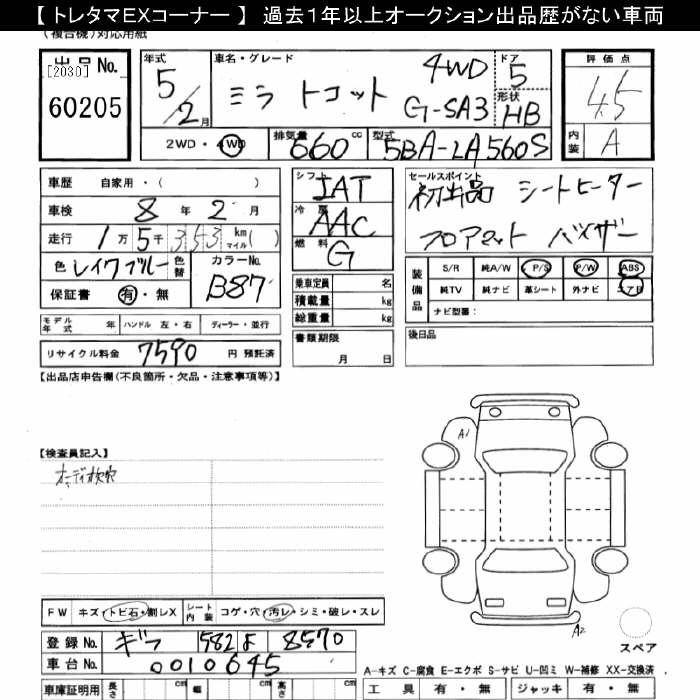 【 トレタマEXコーナー 】 過去1年以上オークション出品歴がない車両
(複合機)対応用紙
出品 No.
[2030]
60205
年式
5/2月
車名・グレード
ミラ トコット
4WD
G-SA3
ドア
5
形状
HB
評価点
4.5
内装
A
2WD・4WD
排気量
660cc
型式
5BA-LA560S
車歴 自家用・( )
車検 8年 2月
走行 1万5千353 km マイル( )
色 レイクブルー 色替
カラーNo.
B87
保証書 有・無
シフト
IAT
冷房
AAC
燃料
G
セールスポイント
初出品 シートヒーター
フロアマット バイザー
乗車定員 名
積載量 kg
総重量 kg
装備品
S/R 純A/W P/S P/W ABS
純TV 純ナビ 革シート 外ナビ エアB
ナビ型番:
モデル年式 年 ハンドル 左・右 ディーラー・並行
リサイクル料金 7590 円 預託済
書類期限
月 日
後日品
【出品店申告欄(不良箇所・欠品・注意事項等)】
【検査員記入】
オーディオ欠穴
A1
A2
スペア
FW キズ・トビ石・割レX シート内装 コゲ・穴・汚レ・シミ・破レ・スレ
登録 No. ギフ 582 よ 8570
車台 No. 0010645
A-キズ C-腐食 E-エクボ S-サビ U-凹ミ W-補修 XX-交換済
車庫証明用 長さ cm 幅 cm 高さ cm
工具 有・無 ジャッキ 有・無